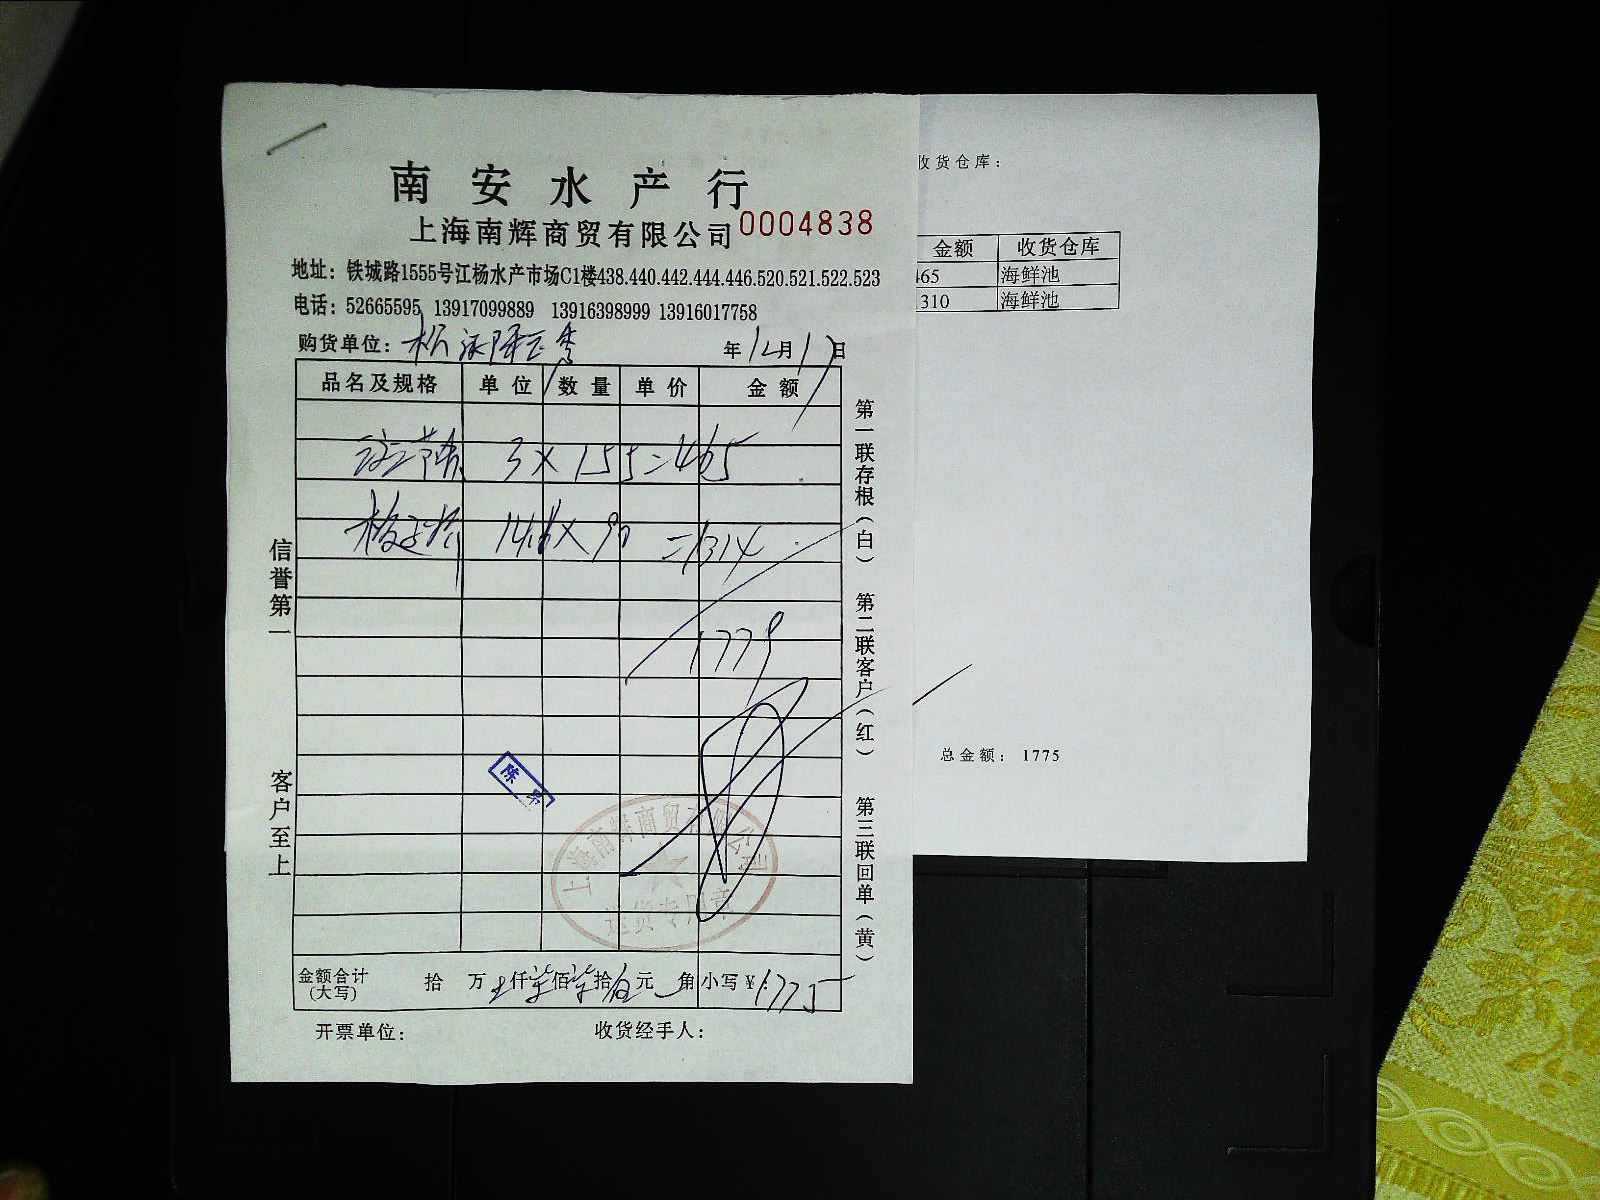 南安水产行
上海南辉商贸有限公司 0004838
地址：铁城路1555号江杨水产市场C1楼438.440.442.444.446.520.521.522.523
电话：52665595 13917099889 13916398999 13916017758
购货单位：
年12月17日
品名及规格 单位 数量 单价 金额
3×155=465
14.6×90=1314
1779
陈
上海南辉商贸有限公司
送货专用章
金额合计(大写) 拾 万 仟柒佰柒拾伍元 角 小写￥：1775
开票单位： 收货经手人：
信誉第一 客户至上
第一联存根(白) 第二联客户(红) 第三联回单(黄)
收货仓库：
金额 收货仓库
465 海鲜池
1310 海鲜池
总金额：1775